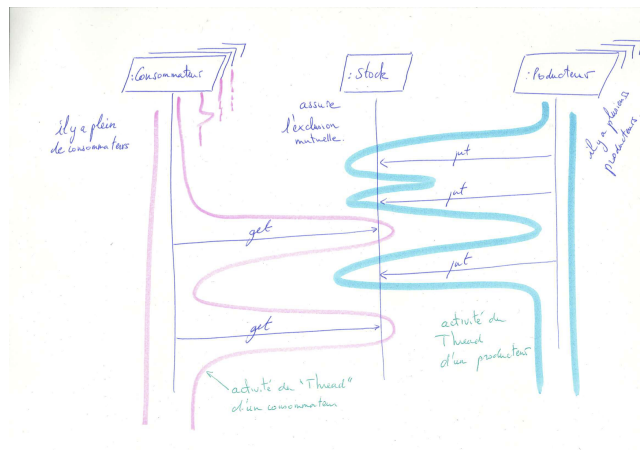 :Consommateur
:Stock
:Producteur
il y a plein
de consommateurs
assure
l'exclusion
mutuelle.
il y a pleins
producteurs
put
put
get
put
get
activité du
Thread
d'un producteur
activité du "Thread"
d'un consommateur